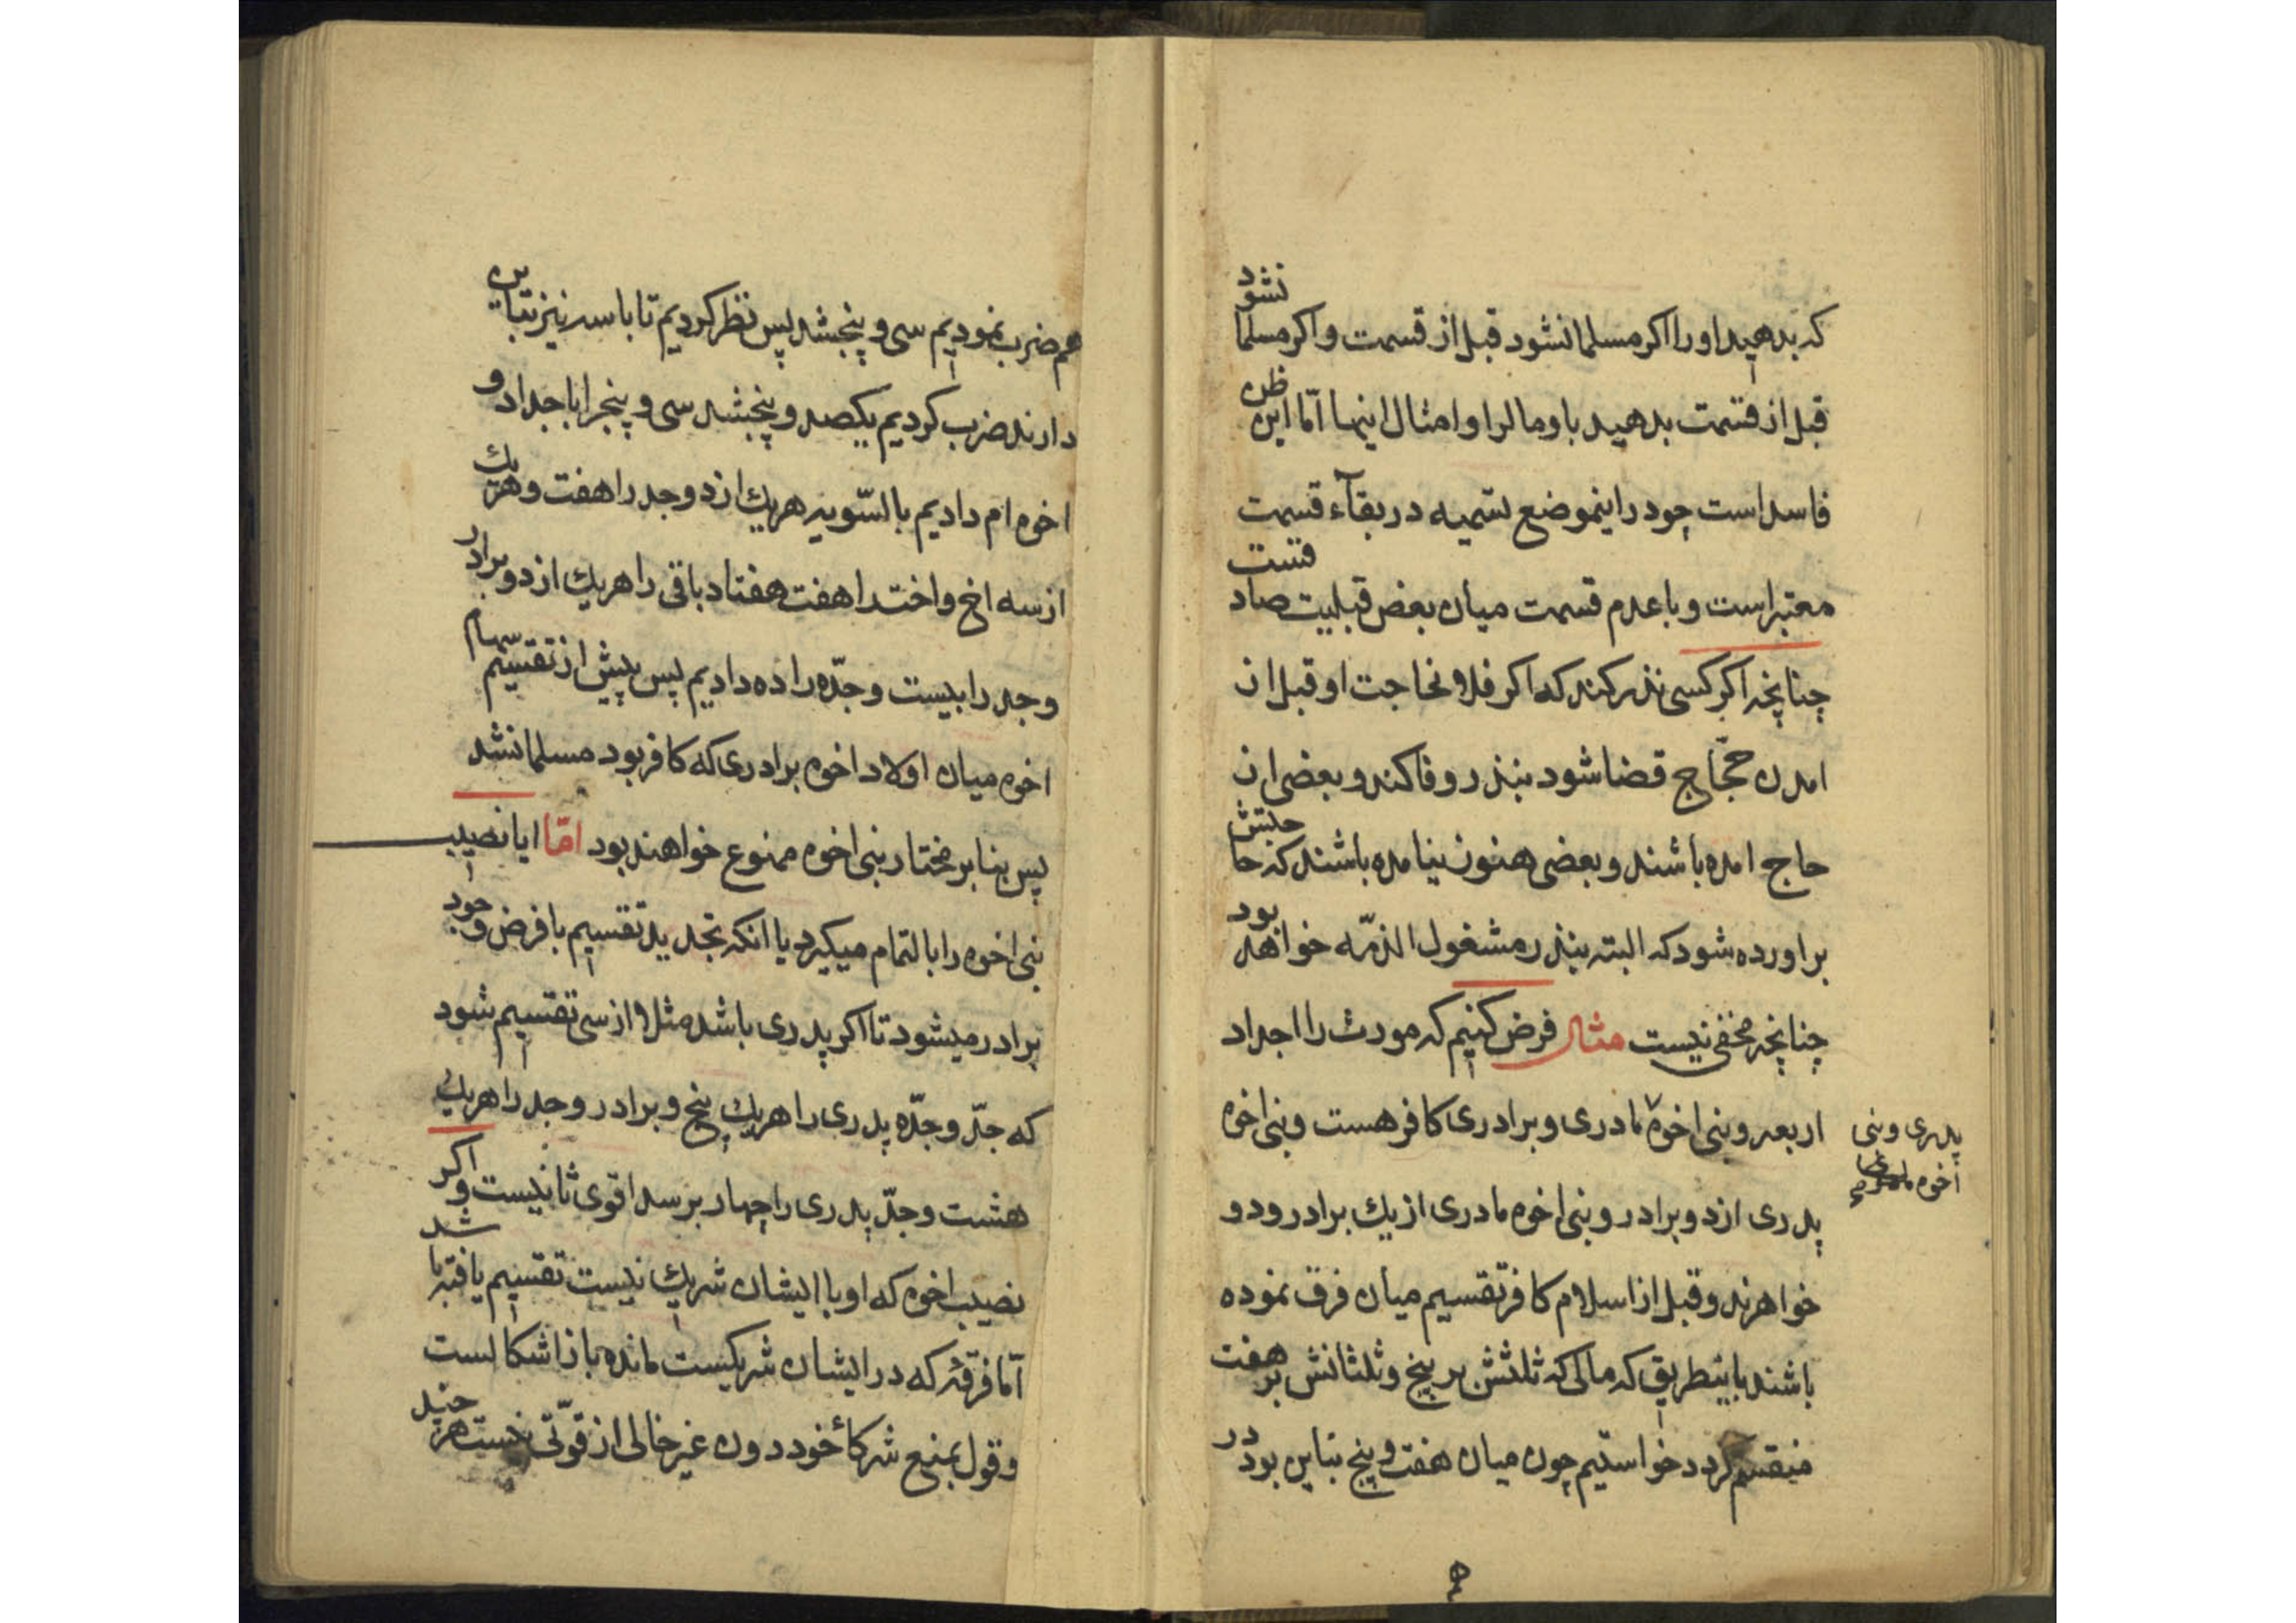 که بدهید او را اکر مسلمان نشود قبل از قسمت و اکر مسلمان نشود
قبل از قسمت بدهید باو مال را و امثال اینها امّا این ظن
فاسد است چه در اینموضع تسمیه در بقآء قسمت
معتبر است و با عدم قسمت میان بعض قبلیت صادقست
چنانچه اکر کسی نذر کند که اکر فلان حاجت او قبل از
امدن حجّاج قضا شود بنذر وفا کند و بعضی از
حاج امده باشند و بعضی هنوز نیامده باشند که حاجتش
براورده شود که البته بنذر مشغول الذمّه خواهد بود
چنانچه مخفی نیست مثال فرض کنیم که مورث را اجداد
اربعه و بنی اخوهٔ مادری و برادری کافر هست و بنی اخوه
پدری و بنی
اخوه
پدری از دو برادر و بنی اخوه مادری از یك برادر و دو
خواهرند و قبل از اسلام کافر تقسیم میان فرق نموده
باشند باینطریق که مالی که ثلثش بر پنج و ثلثانش بر هفت
منقسم کردد خواستیم چون میان هفت و پنج تباین بود در
هم ضرب نمودیم سی و پنج شد پس نظر کردیم تا با سه نیز تباین
دارند ضرب کردیم یکصد و پنج شد سی و پنج را باجداد و
اخوه ام دادیم بالسّویه هر یك از دو جد را هفت و هر یك
از سه اخ و اخت را هفت هفتاد باقی را هر یك از دو برادر
و جد را بیست و جدّه را ده دادیم پس پیش از تقسیم سهام
اخوه میان اولاد اخوه برادری که کافر بود مسلمان شد
پس بنابر مختار بنی اخوه ممنوع خواهند بود امّا ایا نصیب
بنی اخوه را بالتمام میکیرد یا انکه تجدید تقسیم با فرض وجود
برادر میشود تا اکر پدری باشد مثلا از سی تقسیم شود
که جدّ و جدّه پدری را هر یك پنج و برادر و جد را هر یك
هشت و جدّ پدری را چهار برسد اقوی ثانیست و اکر
نصیب اخوه که او با ایشان شریك نیست تقسیم یافته باشد
آما فرقهٔ که در ایشان شریکیست مانده باز اشکالست
و قول بمنع شرکاء خود دون غیر خالی از قوّتی نیست هر چند